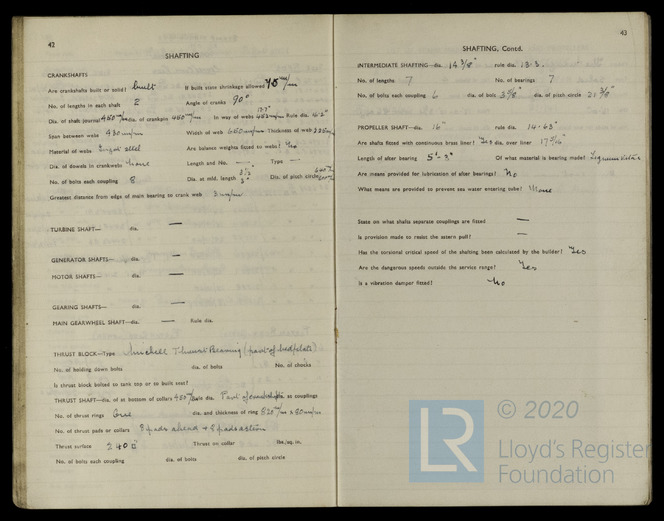 42
SHAFTING
CRANKSHAFTS
Are crankshafts built or solid? built If built state shrinkage allowed
No. of lengths in each shaft 2 Angle of cranks 90°
Dia. of shaft journal 450 m/m dia. of crankpin 450 m/m In way of webs Rule dia.
Span between webs 430 m/m Width of web 650 m/m Thickness of web
Material of webs Ingot steel Are balance weights fitted to webs? Yes
Dia. of dowels in crankwebs None Length and No. — Type —
No. of bolts each coupling 8 Dia. at mid. length Dia. of pitch circle
Greatest distance from edge of main bearing to crank web
TURBINE SHAFT— dia. —
GENERATOR SHAFTS— dia. —
MOTOR SHAFTS— dia. —
GEARING SHAFTS— dia. —
MAIN GEARWHEEL SHAFT—dia. — Rule dia.
THRUST BLOCK—Type Michell Thrust Bearing (part of bedplate)
No. of holding down bolts dia. of bolts No. of chocks
Is thrust block bolted to tank top or to built seat?
THRUST SHAFT—dia. of at bottom of collars 450 m/m rule dia. Part of crankshaft at couplings
No. of thrust rings One dia. and thickness of ring 820 m/m x 80 m/m
No. of thrust pads or collars 8 pads ahead & 8 pads astern
Thrust surface 2400 Thrust on collar lbs./sq. in.
No. of bolts each coupling dia. of bolts dia. of pitch circle
43
SHAFTING, Contd.
INTERMEDIATE SHAFTING—dia. 14 3/8" rule dia. 13.3
No. of lengths 7 No. of bearings 7
No. of bolts each coupling 6 dia. of bolt 3 5/8" dia. of pitch circle 21 3/8"
PROPELLER SHAFT—dia. 16" rule dia. 14.63"
Are shafts fitted with continuous brass liner? Yes dia. over liner
Length of after bearing 5'-3" Of what material is bearing made? Lignum Vitae
Are means provided for lubrication of after bearings? No
What means are provided to prevent sea water entering tube? None
State on what shafts separate couplings are fitted —
Is provision made to resist the astern pull? —
Has the torsional critical speed of the shafting been calculated by the builder? Yes
Are the dangerous speeds outside the service range? Yes
Is a vibration damper fitted? No
LR
© 2020
Lloyd's Register
Foundation